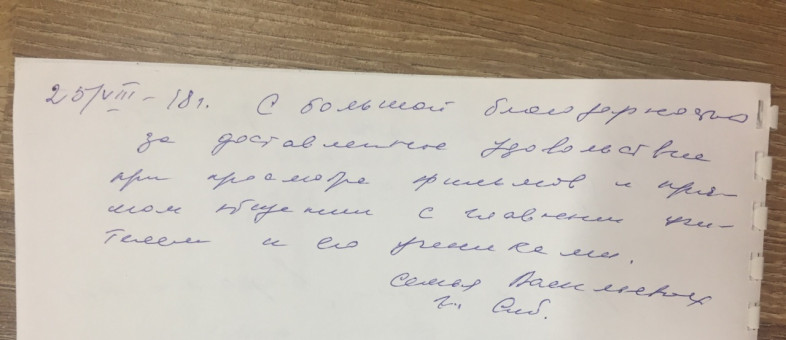 25/VIII-18г. С большой благодарностью
за доставленное удовольствие
при просмотре фильмов и пря-
мом общении с главным учи-
телем и его учениками.
Семья Васильевых
г. Спб.